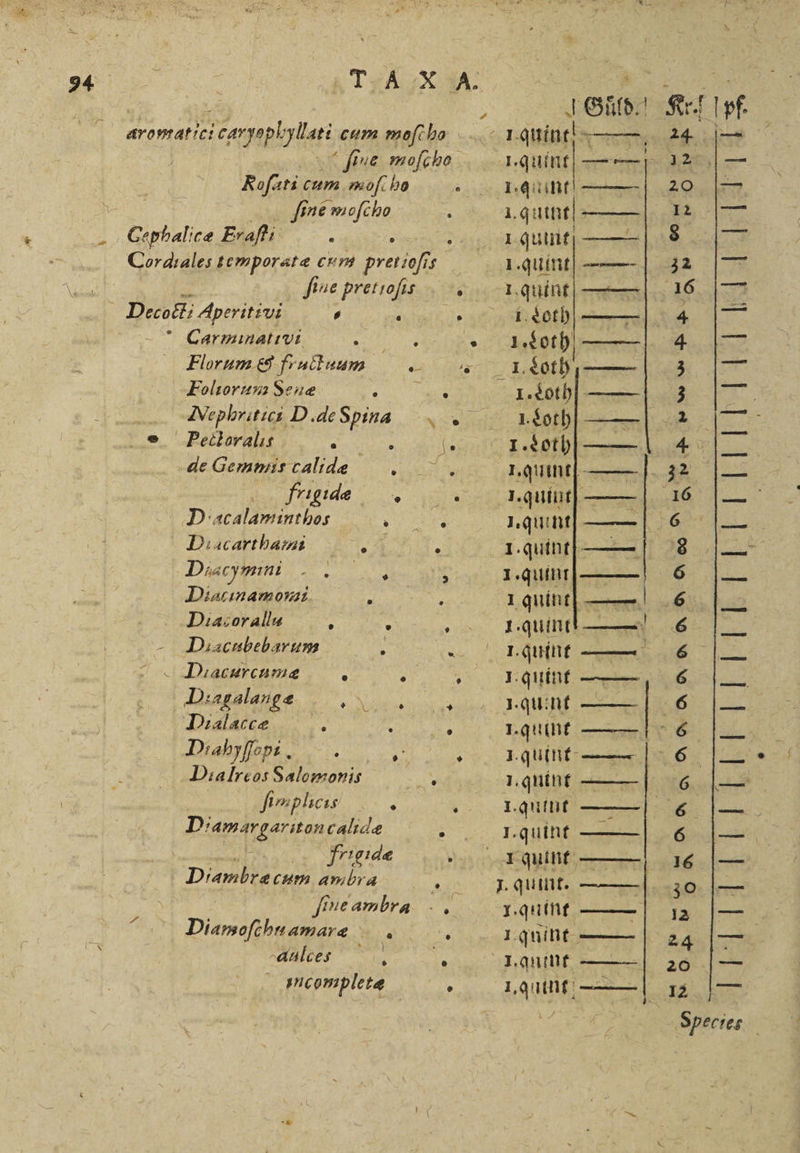 94 T A X A.
Gůld. Kr. pf.
aromatici caryophyllati cum moſcho 1 quint — 24 —
ſine moſcho 1.quint — 12 —
Roſati cum moſcho . 1.quint — 20 —
ſine moſcho . 1.quint — 12 —
Cephalicæ Eraſti . . . 1 quint — 8 —
Cordiales temporatæ cum pretioſis 1.quint — 32 —
ſine pretioſis . 1.quint — 16 —
Decocti Aperitivi . . . 1.Loth — 4 —
Carminativi . . . 1.Loth — 4 —
Florum & fructuum . . 1.Loth — 3 —
Foliorum Senæ . . 1.Loth — 3 —
Nephritici D.de Spina . 1.Loth — 2 —
Pectoralis . . . 1.Loth — 4 —
de Gemmis calidæ . . 1.quint — 32 —
frigidæ . . 1.quint — 16 —
Diacalaminthos . . 1.quint — 6 —
Diacarthami . . 1.quint — 8 —
Diacymini . . . , 1.quint — 6 —
Diacinamomi . . 1 quint — 6 —
Diacorallu . . . 1.quint — 6 —
Diacubebarum . . 1.quint — 6 —
Diacurcumæ . . . 1.quint — 6 —
Diagalangæ . . . 1.quint — 6 —
Dialaccæ . . . 1.quint — 6 —
Diahyſſopi . . . . 1.quint — 6 —
Dialreos Salomonis . 1.quint — 6 —
ſimplicis . . 1.quint — 6 —
Diamargariton calidæ . 1.quint — 6 —
frigidæ . 1 quint — 16 —
Diambræ cum ambra . 1.quint. — 30 —
ſine ambra . 1.quint — 12 —
Diamoſchu amaræ . . 1 quint — 24 —
dulces . . 1.quint — 20 —
incompletæ . 1.quint — 12 —
Species